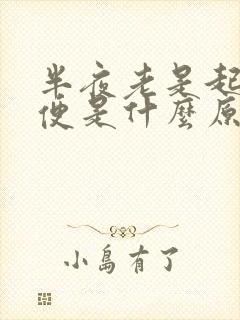 半夜老是起
便是什麼原
小島有了